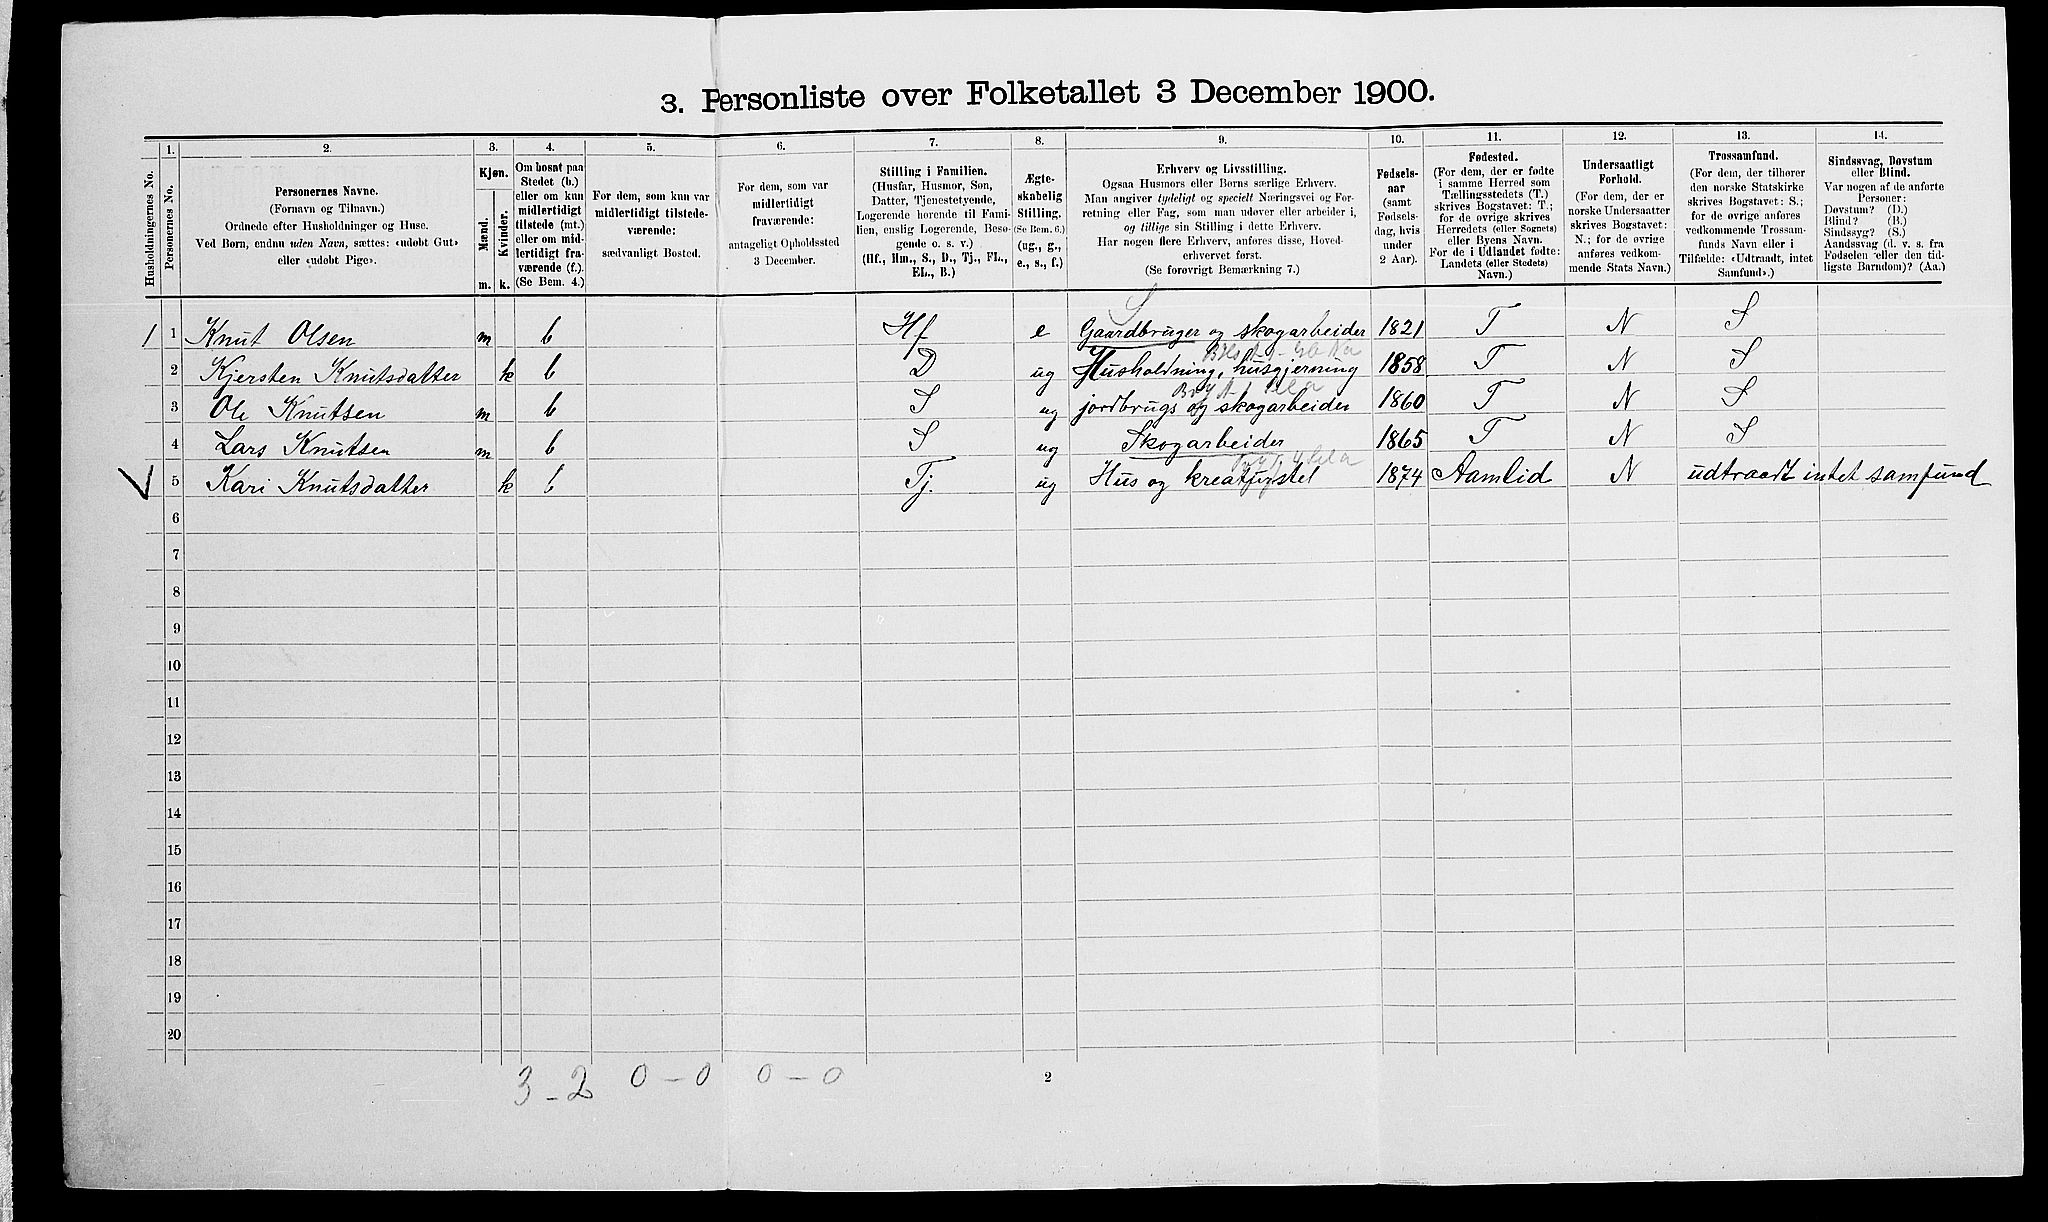 3. Personliste over Folketallet 3 December 1900.
Husholdningernes No.
1.
Personernes No.
2.
Personernes Navne.
(Fornavn og Tilnavn.)
Ordnede efter Husholdninger og Huse.
Ved Børn, endnu uden Navn, sættes: «udøbt Gut»
eller «udøbt Pige».
3.
Kjøn.
Mænd.
Kvinder.
m. k.
4.
Om bosat paa
Stedet (b.)
eller om kun
midlertidigt
tilstede (mt.)
eller om mid-
lertidigt fra-
værende (f.).
(Se Bem. 4.)
5.
For dem, som kun var
midlertidigt tilstede-
værende:
sædvanligt Bosted.
6.
For dem, som var
midlertidigt
fraværende:
antageligt Opholdssted
3 December.
7.
Stilling i Familien.
(Husfar, Husmor, Søn,
Datter, Tjenestetyende,
Logerende hørende til Fami-
lien, enslig Logerende, Besø-
gende o. s. v.)
(Hf., Hm., S., D., Tj., FL.,
EL., B.)
8.
Ægte-
skabelig
Stilling.
(Se Bem. 6.)
(ug., g.,
e., s., f.)
9.
Erhverv og Livsstilling.
Ogsaa Husmors eller Børns særlige Erhverv.
Man angiver tydeligt og specielt Næringsvei og For-
retning eller Fag, som man udøver eller arbeider i,
og tillige sin Stilling i dette Erhverv.
Har nogen flere Erhverv, anføres disse, Hoved-
erhvervet først.
(Se forøvrigt Bemærkning 7.)
10.
Fødsels-
aar
(samt
Fødsels-
dag, hvis
under
2 Aar).
11.
Fødested.
(For dem, der er fødte
i samme Herred som
Tællingsstedets (T.)
skrives Bogstavet: T.;
for de øvrige skrives
Herredets (eller Sognets)
eller Byens Navn.
For de i Udlandet fødte:
Landets (eller Stedets)
Navn.)
12.
Undersaatligt
Forhold.
(For dem, der er
norske Undersaatter
skrives Bogstavet:
N.; for de øvrige
anføres vedkom-
mende Stats Navn.)
13.
Trossamfund.
(For dem, der tilhører
den norske Statskirke
skrives Bogstavet: S.;
for de øvrige anføres
vedkommende Trossam-
funds Navn eller i
Tilfælde: «Udtraadt, intet
Samfund».)
14.
Sindssvag, Døvstum
eller Blind.
Var nogen af de anførte
Personer:
Døvstum? (D.)
Blind? (B.)
Sindssyg? (S.)
Aandssvag (d. v. s. fra
Fødselen eller den tid-
ligste Barndom)? (Aa.)
S
1 1 Knut Olsen m b Hf e Gaardbruger og skogarbeider 1821 T N S
2 Kjersten Knutsdatter k b D ug Husholdning, husgjerning 1858 T N S
3 Ole Knutsen m b S ug jordbrugs og skogarbeider 1860 T N S
4 Lars Knutsen m b S ug Skogarbeider 1865 T N S
5 Kari Knutsdatter k b Tj. ug Hus og kreaturstel 1874 Aamlid N udtraadt intet samfund
6
7
8
9
10
11
12
13
14
15
16
17
18
19
20
3 - 2 0 - 0 0 - 0
2